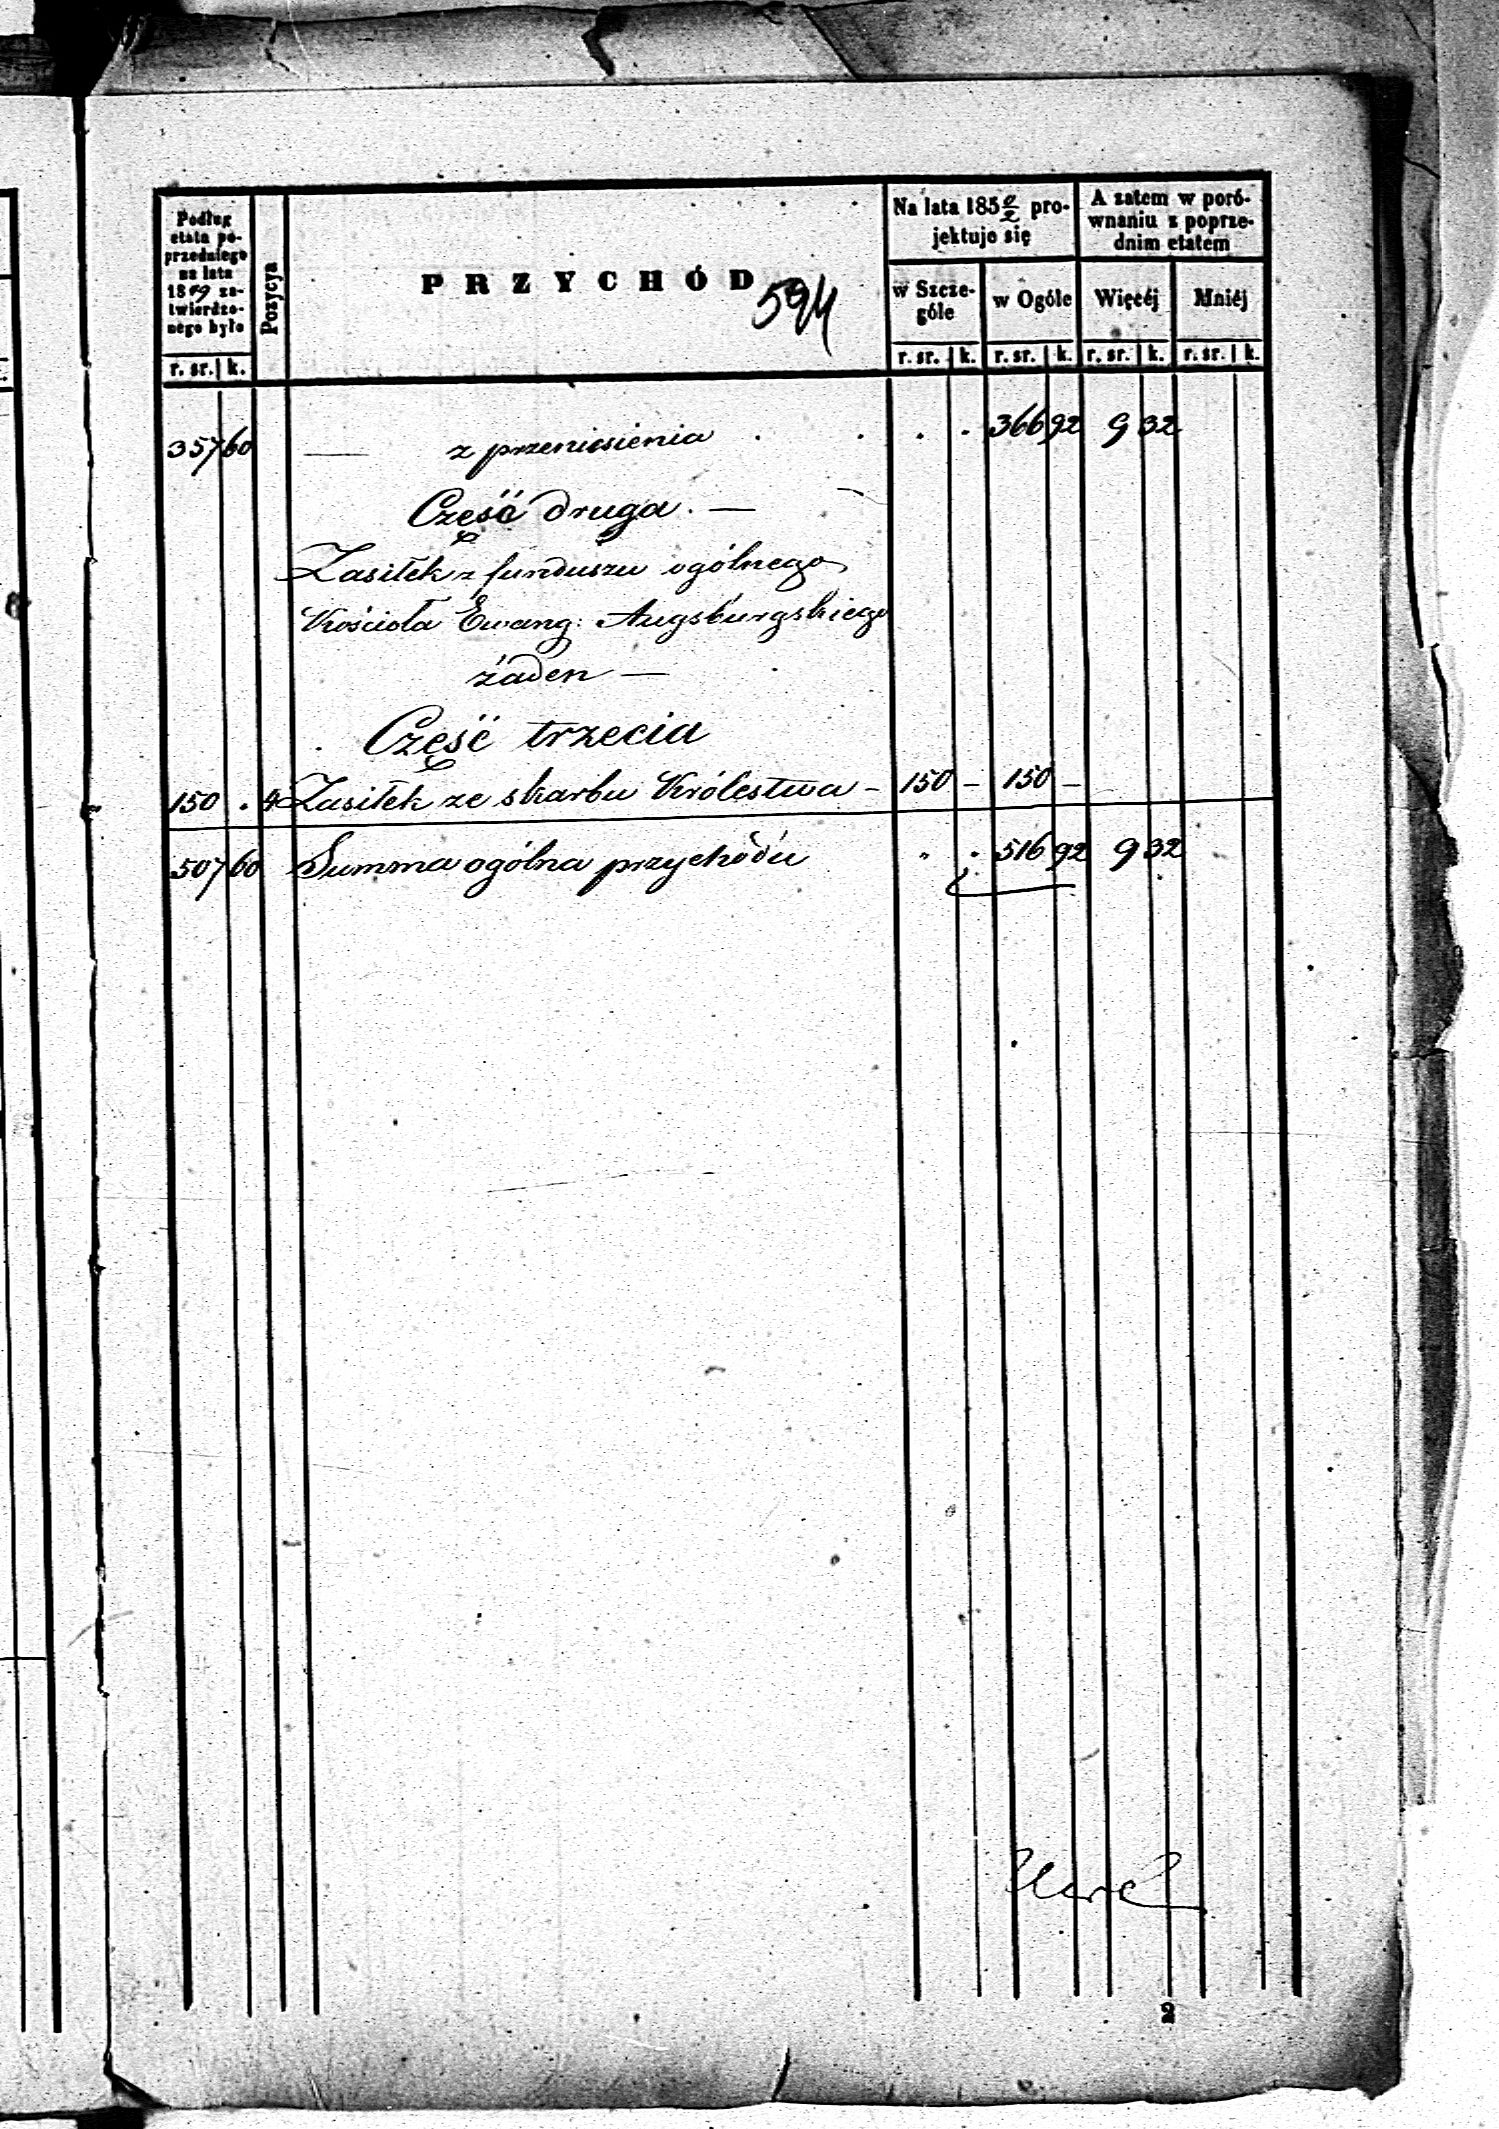 Podług
etatu po-
przedniego
na lata
18 49 za-
twierdzo-
nego było
r. sr. k.
Pozycya
PRZYCHÓD
594
Na lata 185 0/2 pro-
jektuje się
w Szcze-
góle
r. sr. k.
w Ogóle
r. sr. k.
A zatem w poró-
wnaniu z poprze-
dnim etatem
Więcéj
r. sr. k.
Mniéj
r. sr. k.
357 60 — z przeniesienia . . . . 366 92 9 32
Część druga. —
Zasiłek z funduszu ogólnego
Kościoła Ewang: Augsburgskiego
żaden —
Część trzecia
150 . 4 Zasiłek ze skarbu Królestwa – 150 – 150 –
507 60 Summa ogólna przychodu " . 516 92 9 32
2